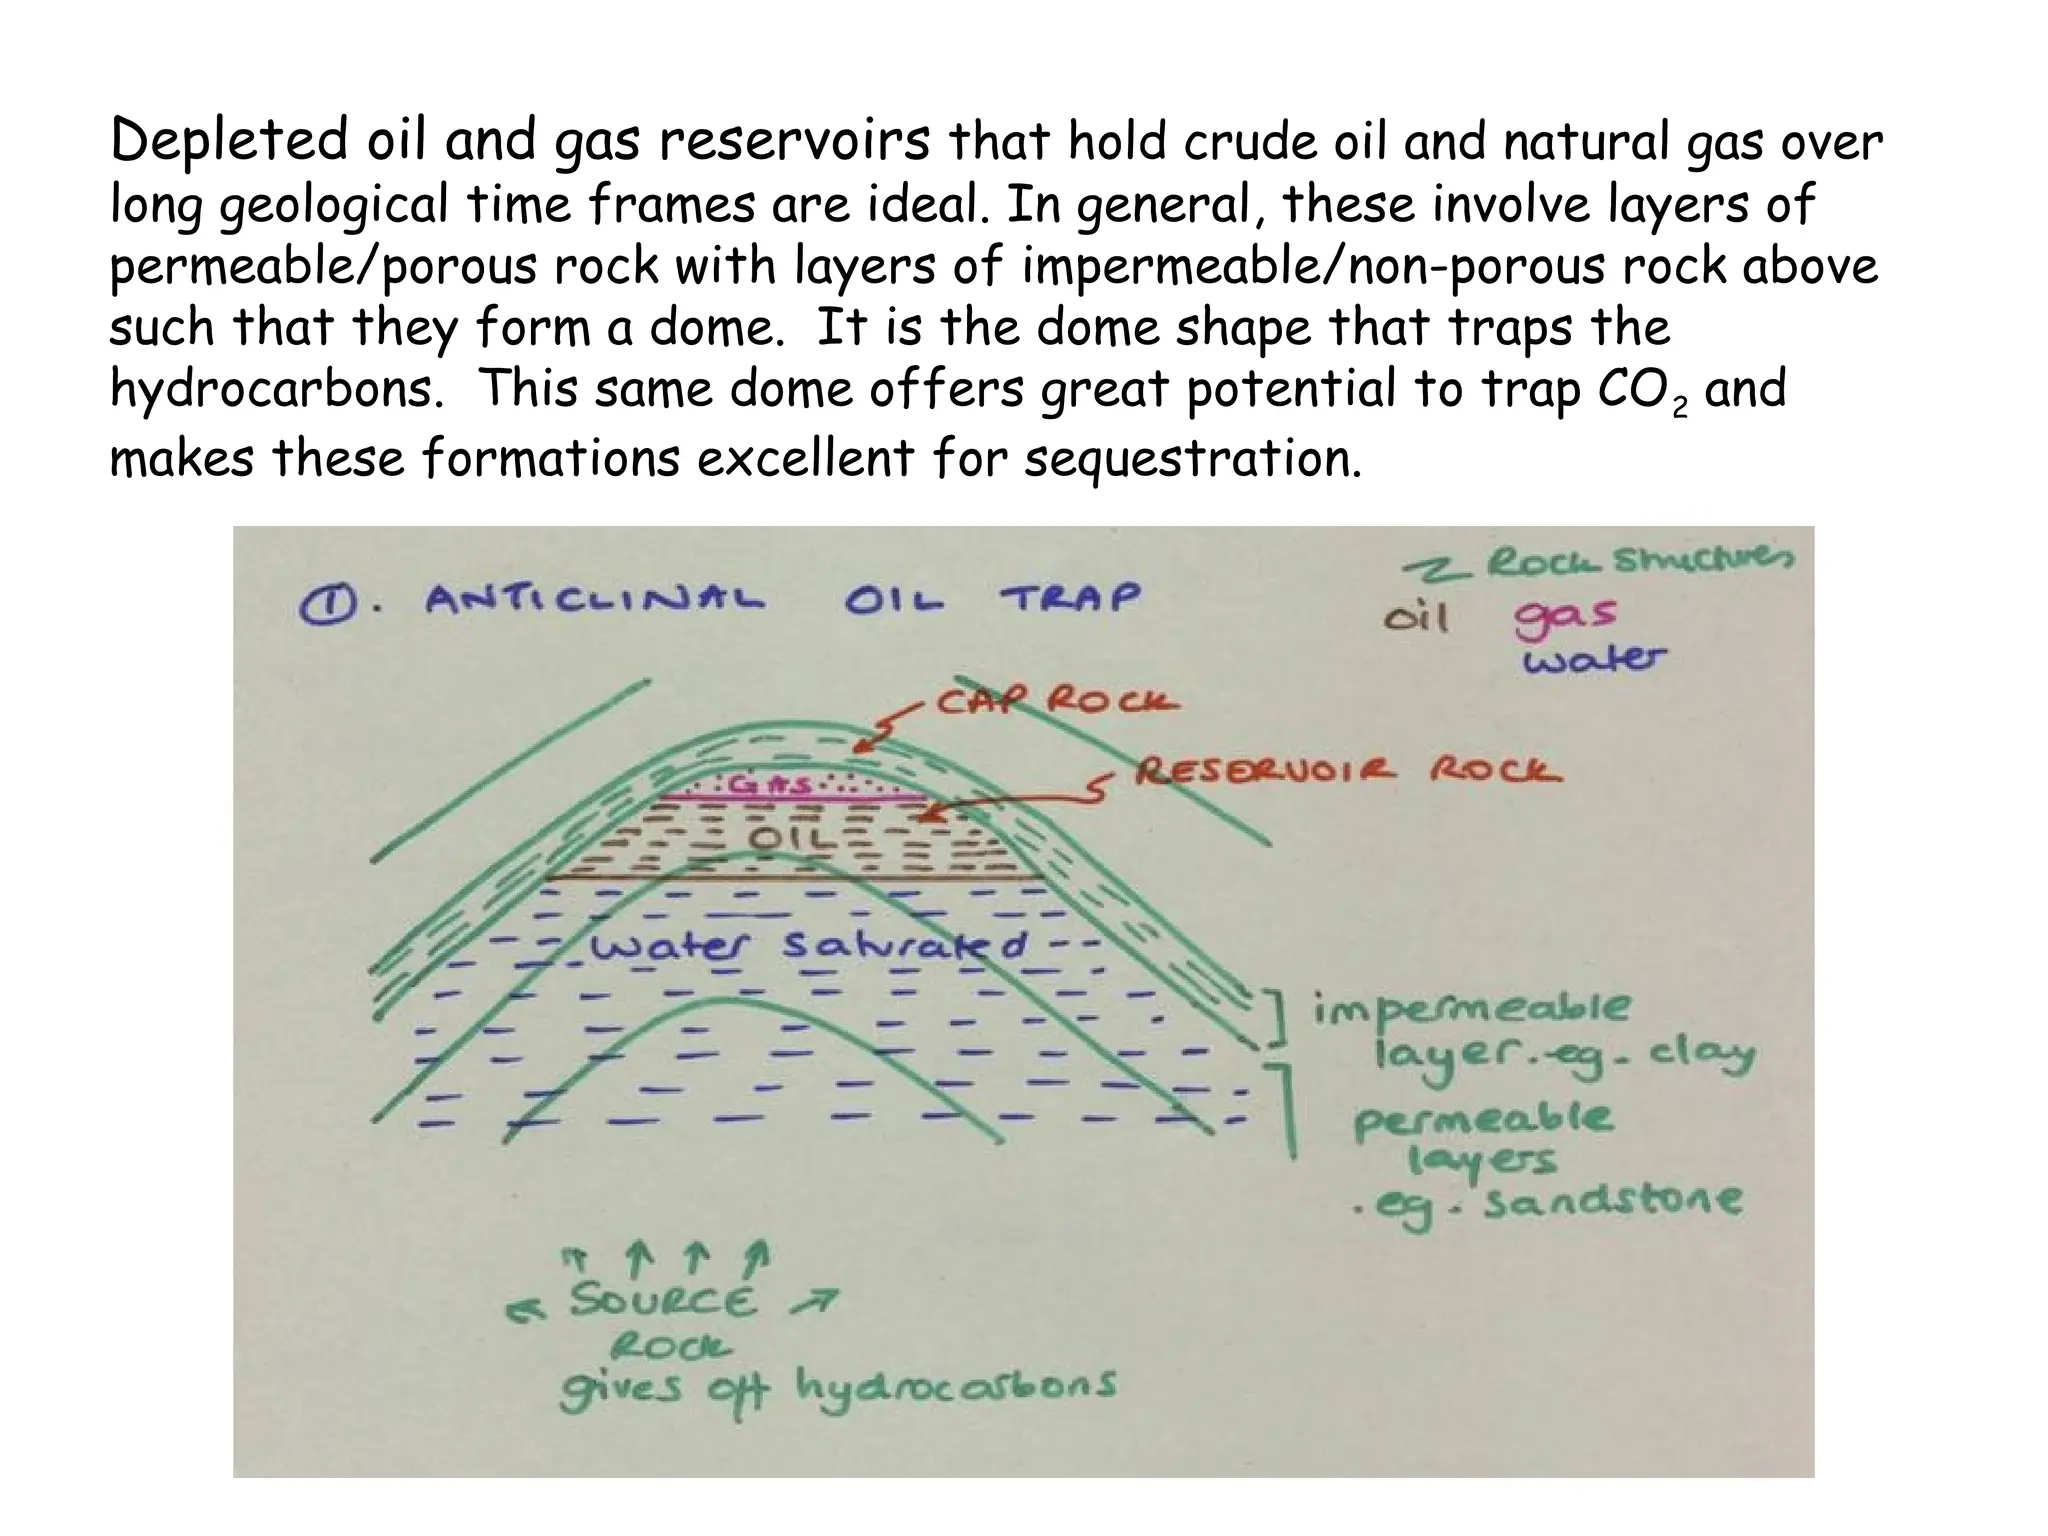 Depleted oil and gas reservoirs that hold crude oil and natural gas over
long geological time frames are ideal. In general, these involve layers of
permeable/porous rock with layers of impermeable/non-porous rock above
such that they form a dome.  It is the dome shape that traps the
hydrocarbons.  This same dome offers great potential to trap CO₂ and
makes these formations excellent for sequestration.
①. ANTICLINAL OIL TRAP
Rock structures
oil gas
water
CAP ROCK
RESERVOIR ROCK
GAS
OIL
water saturated
impermeable
layer. eg. clay
permeable
layers
.eg. sandstone
SOURCE
ROCK
gives off hydrocarbons